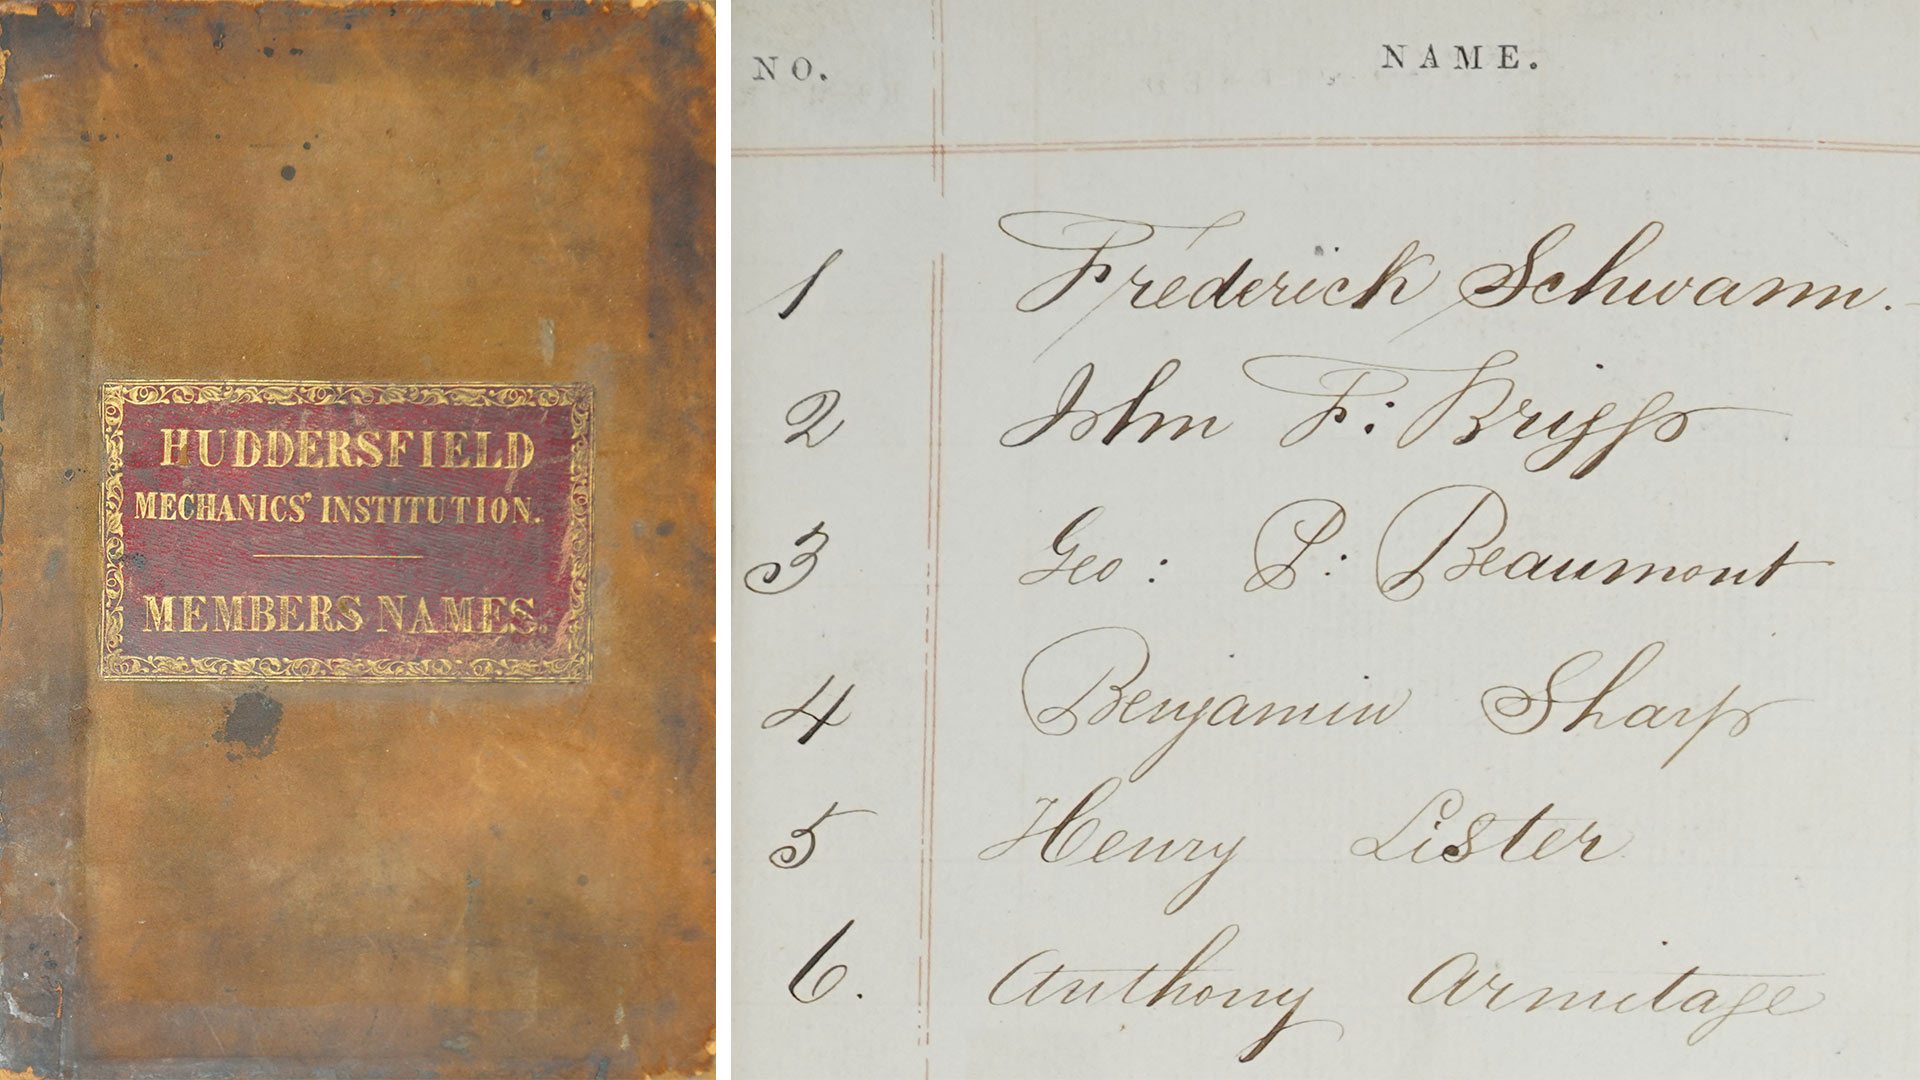 HUDDERSFIELD
MECHANICS' INSTITUTION.
MEMBERS NAMES.
NO. NAME.
1 Frederick Schwann.
2 John F: Briggs
3 Geo: P: Beaumont
4 Benjamin Sharp
5 Henry Lister
6. Anthony Armitage